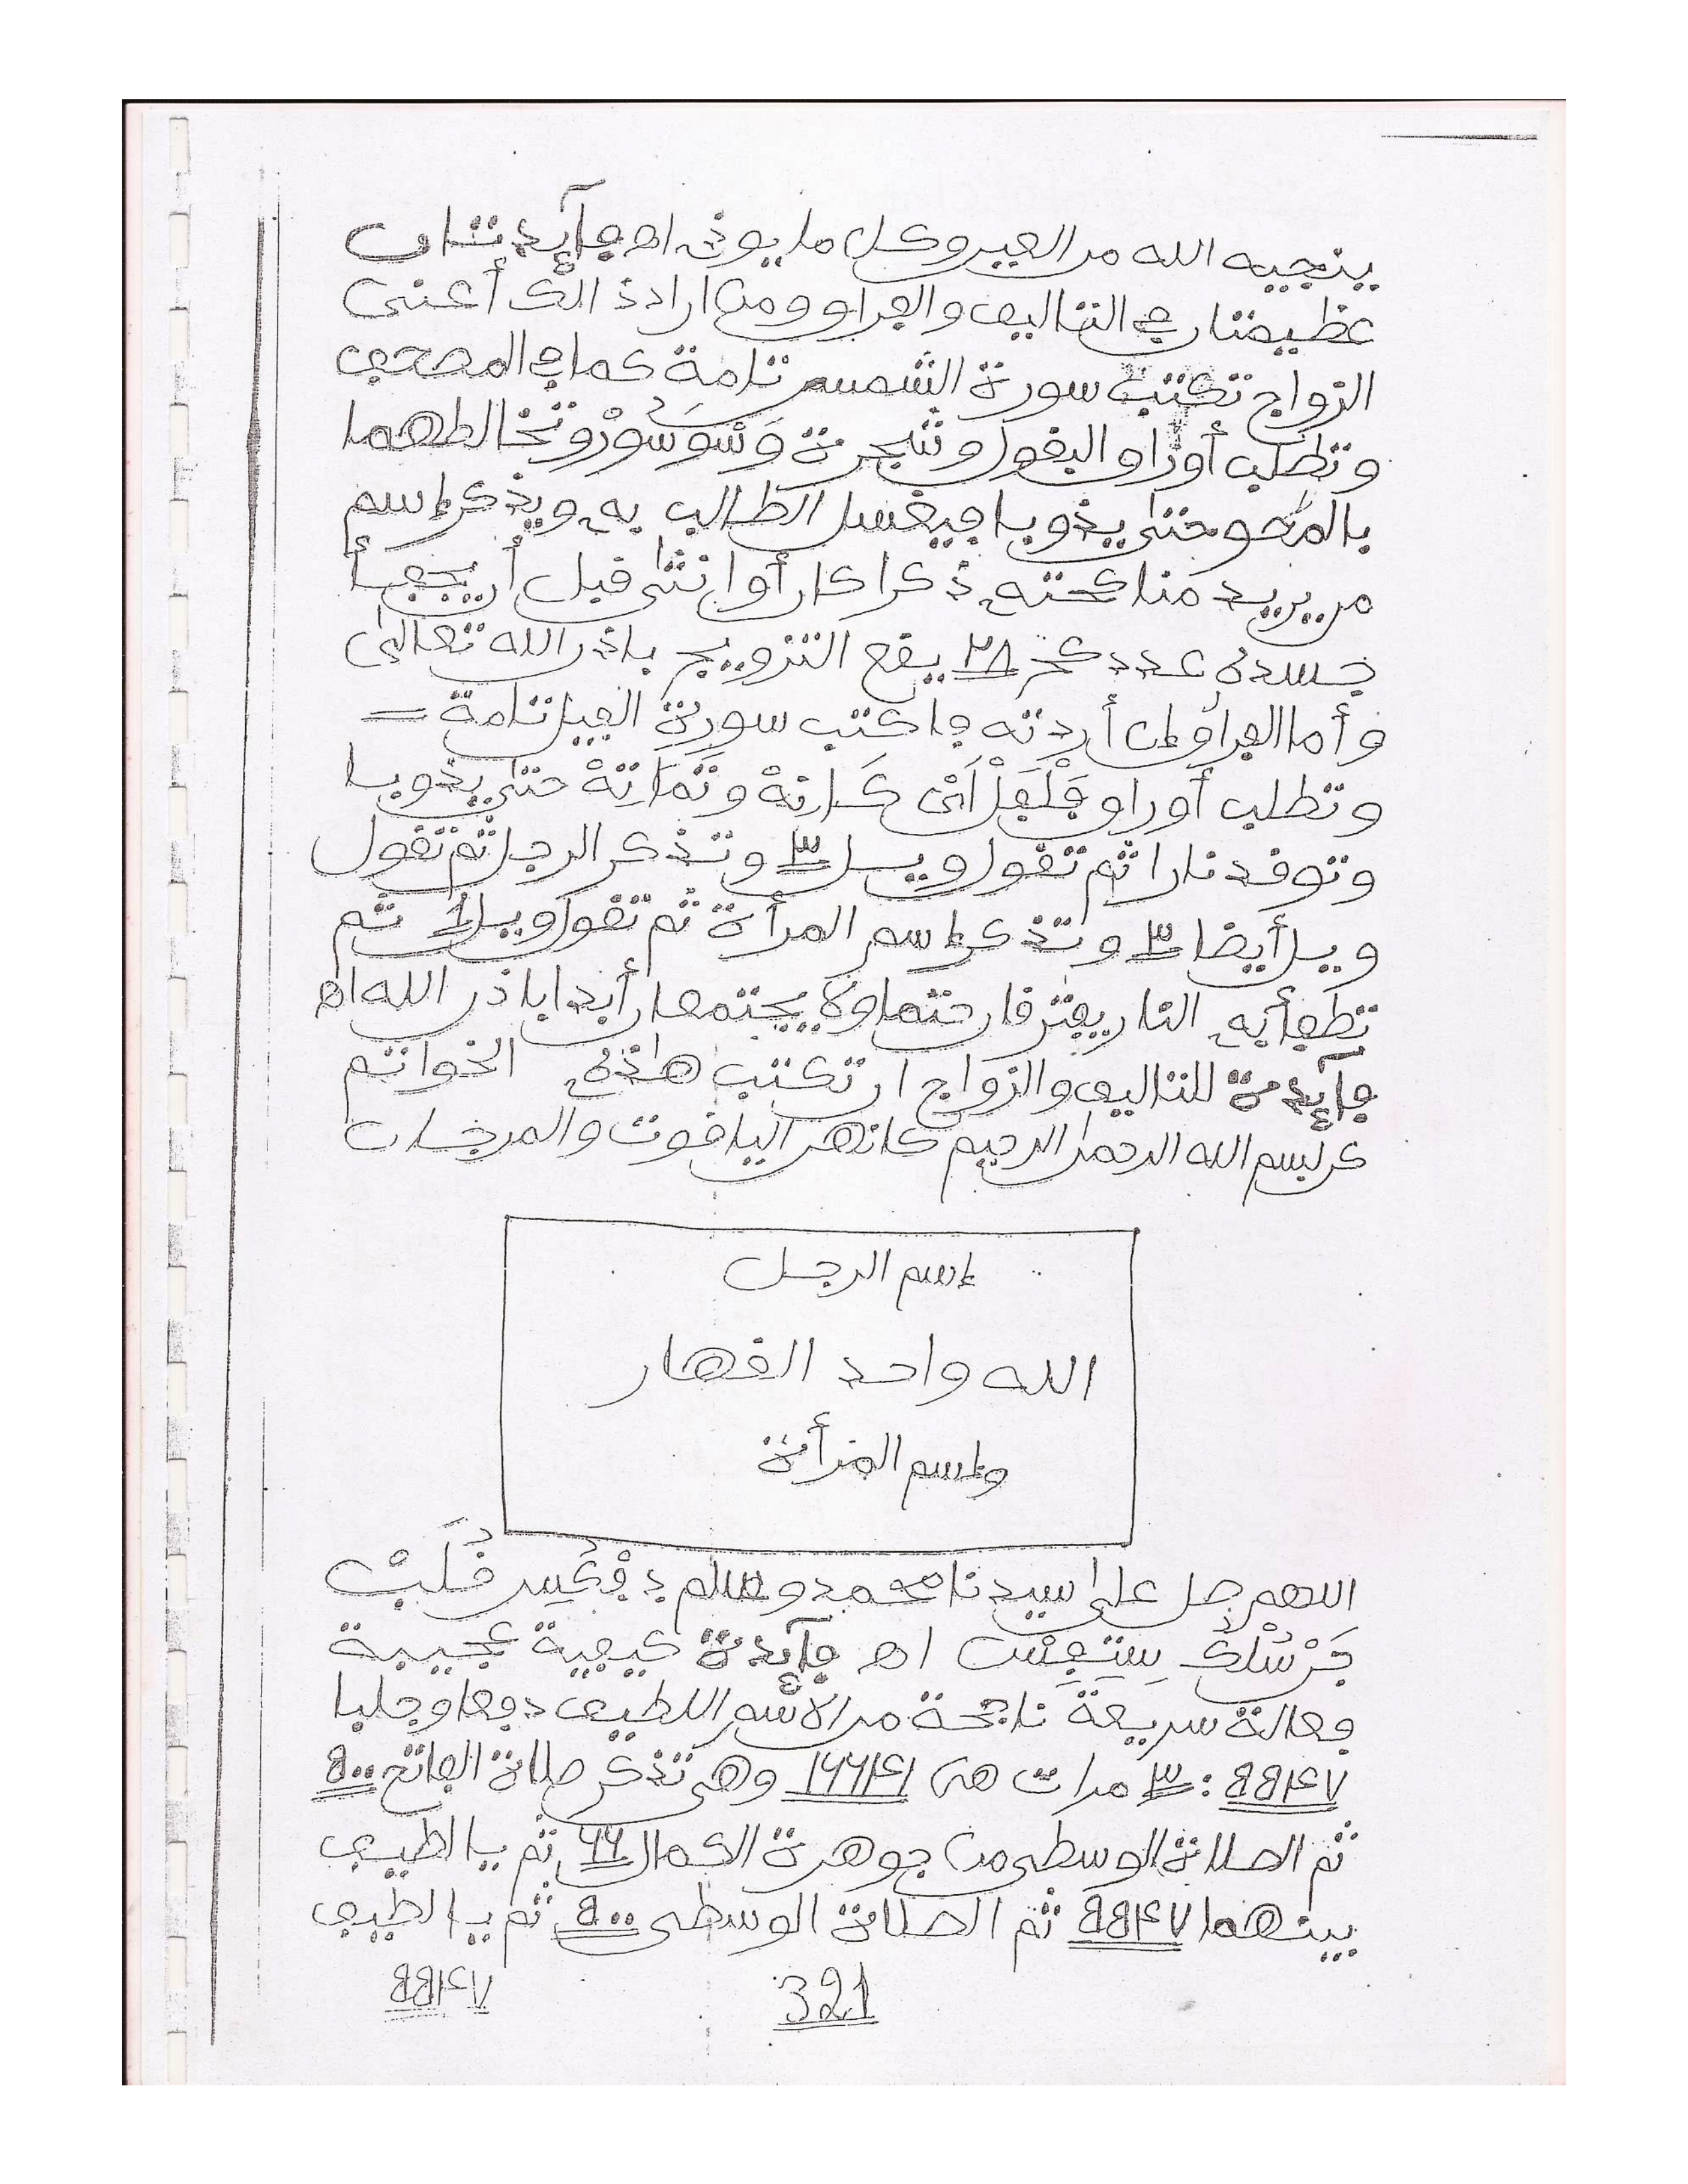 ينجيه الله من العين وكل ما يوذى اه فآيدتان
عظيمتان في التاليف والفراق ومن اراد ذالك أعنى
الزواج تكتب سورة الشمس تامة كما في المصحف
وتطلب أوراق البقول وشجرة وسوسو وتخالطهما
بالمحو حتى يذوبا فيغسل الطالب به ويذكر إسم
من يريد مناكحته ذكرا كان أو انثى قبل أن يجعبأ
جسده عدد كح ٢٨ يقع التزويج باذن الله تعالى
وأما الفراق إن أردته فاكتب سورة الفيل تامة =
وتطلب أوراق وتماتة حتى يذوبا
وتوقد نارا ثم تقول ويل ٣ وتذكر الرجل ثم تقول
ويل أيضا ٣ وتذكر إسم المرأة ثم تقول ويل ثم
تطفأ به النار يفترقان حتما ولا يجتمعان أبدا باذن الله اه
فآيدة للتاليف والزواج ان تكتب هذه الخواتم
عن بسم الله الرحمن الرحيم كانهن الياقوت والمرجان
إسم الرجل
الله واحد القهار
وإسم المرأة
اللهم صل على سيدنا محمد وسلم
اه فآيدة كيفية عجيبة
فعالة سريعة ناجحة من الاسم اللطيف دفعا وجلبا
: ٣ مرات هى ١٦٦٤١ وهى تذكر صلاة الفاتح
ثم الصلاة الوسطى من جوهرة الكمال ٦٦ ثم يا لطيف
بينهما ثم الصلاة الوسطى ثم يا لطيف
321